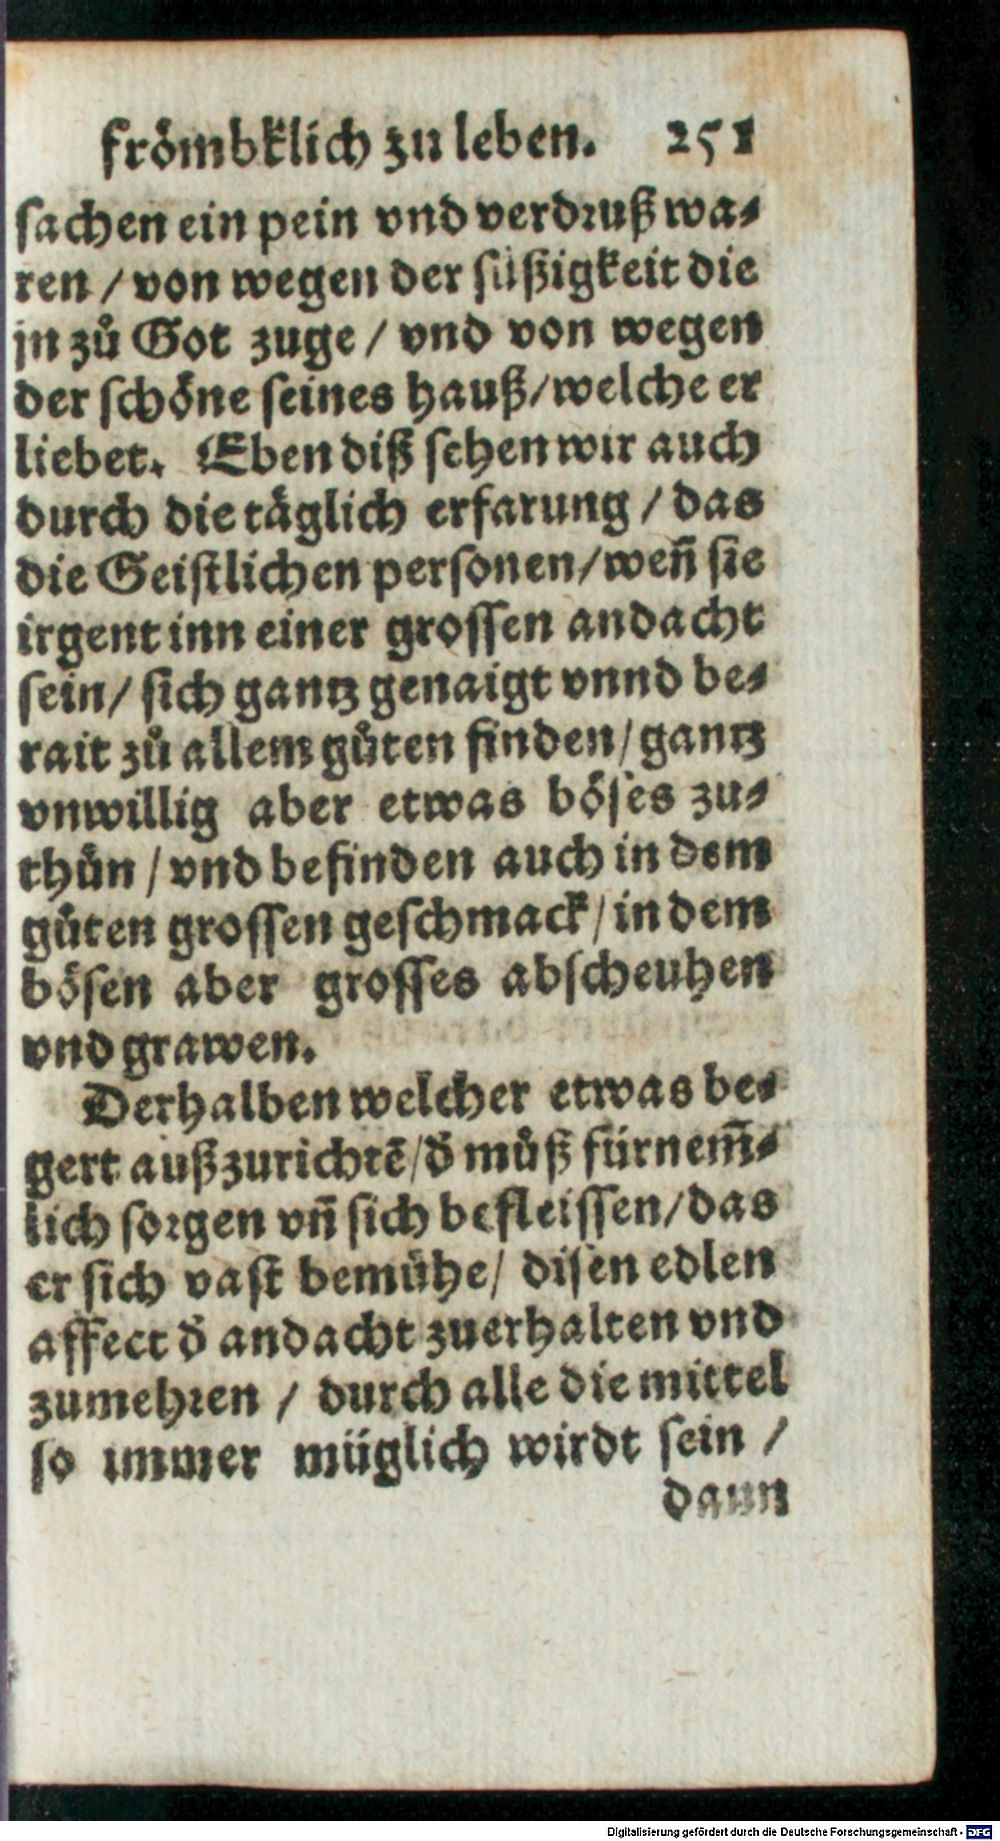 frömbklich zu leben. 251
sachen ein pein vnd verdꝛuß wa⸗
ren / von wegen der süßigkeit die
jn zů Got zuge / vnd von wegen
der schöne seines hauß/welche er
liebet. Eben diß sehen wir auch
durch die täglich erfarung / das
die Geistlichen personen/weñ sie
irgent inn einer grossen andacht
sein/ sich gantz genaigt vnnd be⸗
rait zů allem gůten finden/gantz
vnwillig aber etwas böses zu⸗
thůn / vnd befinden auch in dem
gůten grossen geschmack/in dem
bösen aber grosses abscheuhen
vnd grawen.
Derhalben welcher etwas be⸗
gert außzurichtē/d̄ můß fürnem̄⸗
lich soꝛgen vñ sich befleissen/das
er sich vast bemühe/ disen edlen
affect d̄ andacht zuerhalten vnd
zumehꝛen / durch alle die mittel
so immer müglich wirdt sein /
dann
Digitalisierung gefördert durch die Deutsche Forschungsgemeinschaft - DFG